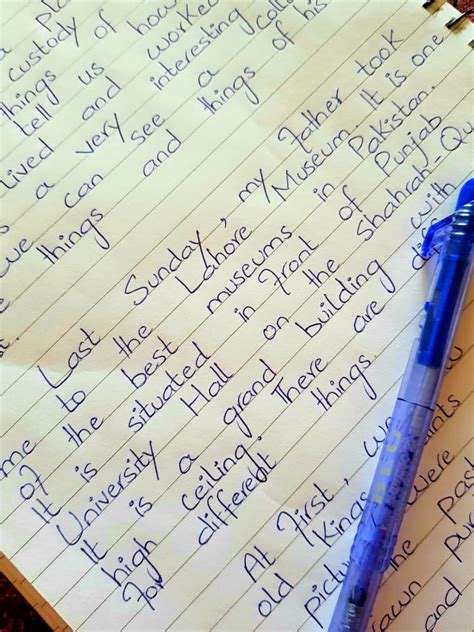 a
custody of
things
tell us how
lived and worked
a very interesting
we can see a
things and things of his
Last Sunday, my Father took
me to the Lahore Museum. It is one
of the best museums in Pakistan.
It is situated in Front of Punjab
University Hall on the Shahrah-Q
It is a grand building with
high ceiling. There are
For different things
At First, we
old Kings
were
the past
and